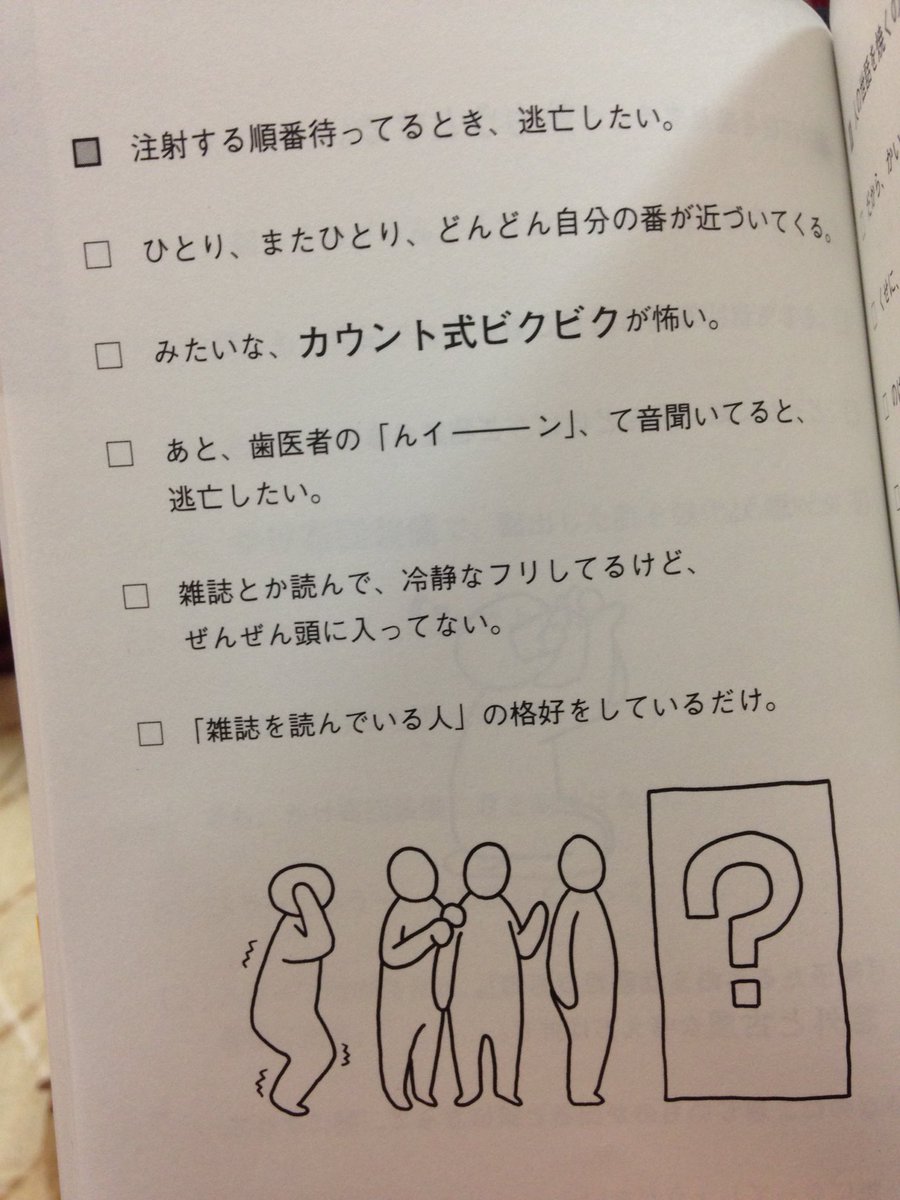 ■ 注射する順番待ってるとき、逃亡したい。
□ ひとり、またひとり、どんどん自分の番が近づいてくる。
□ みたいな、カウント式ビクビクが怖い。
□ あと、歯医者の「んイ───ン」、て音聞いてると、
逃亡したい。
□ 雑誌とか読んで、冷静なフリしてるけど、
ぜんぜん頭に入ってない。
□ 「雑誌を読んでいる人」の格好をしているだけ。
?
だから、かい
くせに、